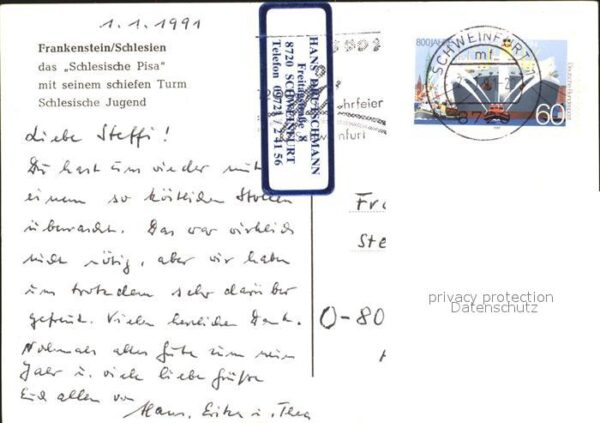 1.1.1991
Frankenstein/Schlesien
das „Schlesische Pisa"
mit seinem schiefen Turm
Schlesische Jugend
Liebe Steffi!
Du hast uns wieder mit
einem so köstlichen Stollen
überrascht. Das war wirklich
nicht nötig, aber wir haben
uns trotzdem sehr darüber
gefreut. Vielen herzlichen Dank.
Nochmals alles Gute zum neuen
Jahr u. viele liebe Grüße
Euch allen von
Hans, Erika u. Thea
HANS DEUTSCHMANN
Freitagstraße 8
8720 SCHWEINFURT
Telefon 09721 / 2 41 56
800 JAHRE
SCHWEINFURT
mf
60
Fr
Ste
O-80
privacy protection
Datenschutz